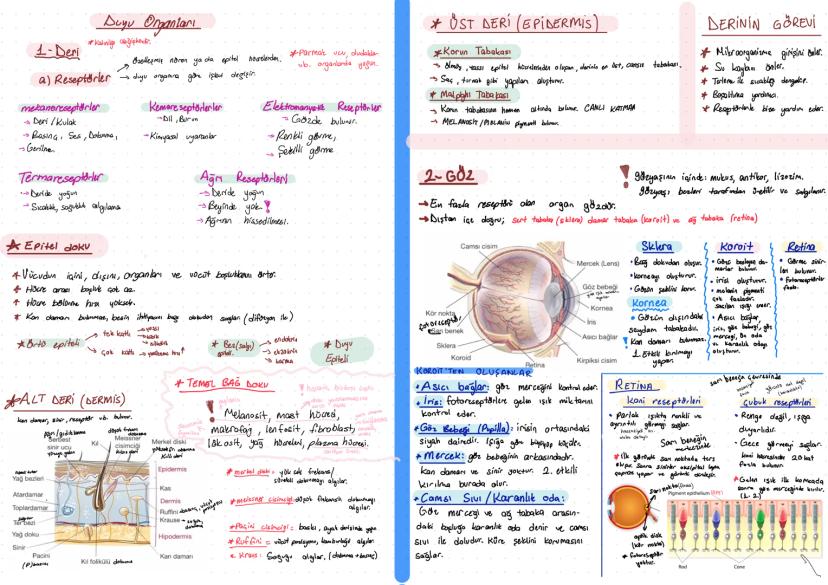 Duyu Organları
1-Deri
a) Reseptörler
→ Özelleşmiş nöron ya da epitel hücrelerden.
→ duyu organına göre işlevi değişir.
*Parmak ucu, dudaklar
vb. organlarda yoğun.
mekanoreseptörler
→ Deri / Kulak
→ Basınç, Ses, Dokunma,
→ Gerilme
Kemoreseptörler
→ Dil, Burun
→ Kimyasal uyaranlar
Elektromanyetik Reseptörler
→ Gözde bulunur.
→ Renkli görme,
→ Şekilli görme
Termoreseptörler
→ Deride yoğun
→ Sıcaklık, soğukluk algılama
Ağrı Reseptörleri
→ Deride yoğun
→ Beyinde yok !
→ Ağrının hissedilmesi.
★ Epitel doku
Vücudun içini, dışını, organları ve vücut boşluklarını örter.
Hücre arası boşluk çok az.
Hücre bölünme hızı yüksek.
* Kan damarı bulunmaz, besin ihtiyacını bağ dokudan sağlar (difüzyon ile)
* Örtü epiteli
tek katlı
çok katlı
* Bez (salgı) epiteli
endokrin
ekzokrin
karma
* Duyu Epiteli
★ ALT DERİ (DERMİS)
kan damarı, sinir, reseptör vb. bulunur.
Serbest sinir ucu
Kıl
Meissner cisimciği
Merkel diski
Yağ bezleri
Atardamar
Toplardamar
Ter bezi
Yağ
Sinir
Pacini
Kıl folikülü
Epidermis
Kas
Dermis
Ruffini
Krause
Hipodermis
Kan damarı
* TEMEL BAĞ DOKU
! Melanosit, mast hücresi,
makrofaj, lenfosit, fibroblast,
lökosit, yağ hücresi, plazma hücresi.
* merkel disk: yüksek frekans/
sürekli dokunmayı algılar.
* meissner cisimciği: düşük frekanslı dokunmayı
algılar.
* Pacini cisimciği: basınç, ayak derisinde yoğun
* Ruffini:
* Kraus: Soğuğu algılar. (dokunma + basınç)
* ÜST DERİ (EPİDERMİS)
* Korun Tabakası
→ Ölmüş, yassı epitel hücrelerinden oluşan, derinin en üst, cansız tabakası.
→ Saç, tırnak gibi yapıları oluşturur.
* Malpighi Tabakası
→ Korun tabakasının hemen altında bulunur. CANLI KATMAN
→ MELANOSİT / pigmenti bulunur.
DERİNİN GÖREVİ
* Mikroorganizma girişini önler.
* Su kaybını önler.
* Terleme ile sıcaklığı dengeler.
* Boşaltıma yardımcı.
* Reseptörlerle bize yardım eder.
2-GÖZ
→ En fazla reseptörü olan organ gözdür.
→ Dıştan içe doğru; sert tabaka (sklera) damar tabaka (koroit) ve ağ tabaka (retina)
! Gözyaşının içinde: mukus, antikor, lizozim.
Gözyaşı bezleri tarafından üretilir ve salgılanır.
Camsı cisim
Mercek (Lens)
Göz bebeği
Kornea
İris
Asıcı bağlar
Kirpiksi cisim
Kör nokta
Sarı benek
Sklera
Koroid
Retina
Sklera
• Bağ dokudan oluşur.
• korneayı oluşturur.
• Gözün şeklini korur.
Kornea
• Gözün dışındaki
saydam tabakadır.
! Kan damarı bulunmaz.
1. Etkili kırılmayı
yapar.
Koroit
• Gözü besleyen damarlar bulunur.
• irisi oluşturur.
• melanin pigmenti
çok fazladır.
• Asıcı bağlar,
iris, göz bebeği, göz
merceği, ön oda
ve karanlık odayı
oluşturur.
Retina
• Görme sinirleri bulunur.
• Fotoreseptörler
fazla.
KOROİT'TEN OLUŞANLAR
• Asıcı bağlar: göz merceğini kontrol eder.
• İris: fotoreseptörlere gelen ışık miktarını
kontrol eder.
• Göz Bebeği (Pupilla): irisin ortasındaki
siyah dairedir. Işığa göre büyüyüp küçülür.
• Mercek: göz bebeğinin arkasındadır.
Kan damarı ve sinir yoktur. 2. etkili
kırılma burada olur.
• Camsı Sıvı / Karanlık oda:
Göz merceği ve ağ tabaka arasındaki boşluğa karanlık oda denir ve camsı
sıvı ile doludur. Küre şeklini korumasını
sağlar.
RETİNA
koni reseptörleri
• Parlak ışıkta renkli ve
ayrıntılı görmeyi sağlar.
sarı beneğin merkezinde
sarı beneğin çevresinde
çubuk reseptörleri
• Renge değil, ışığa
duyarlıdır.
• Gece görmeyi sağlar.
koni hücresinden 20 kat
fazla bulunur.
Pigment epithelium
Rod
Cone
* fotoreseptör
yoktur.